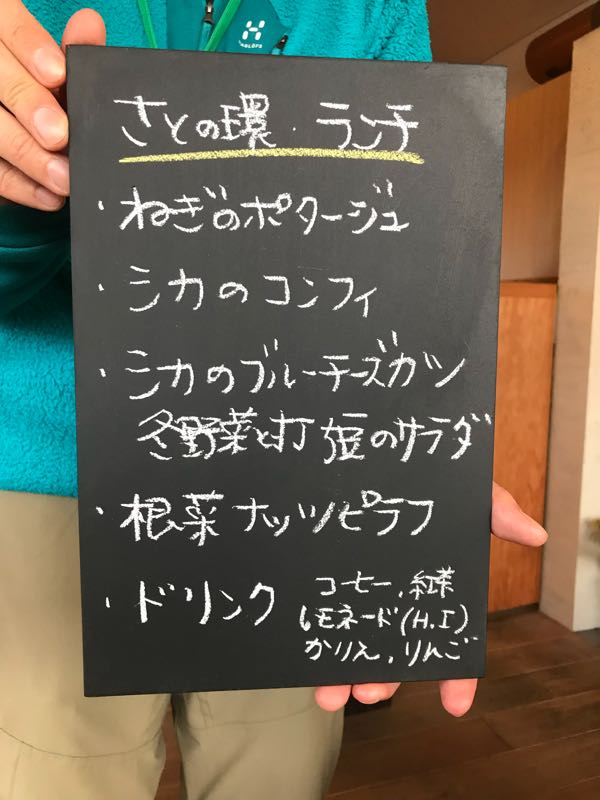 HAGLÖFS
さとの環・ランチ
・ねぎのポタージュ
・シカのコンフィ
・シカのブルーチーズカツ
冬野菜と打豆のサラダ
・根菜ナッツピラフ
・ドリンク
コーヒー、紅茶
レモネード(H.I)
かりん、りんご